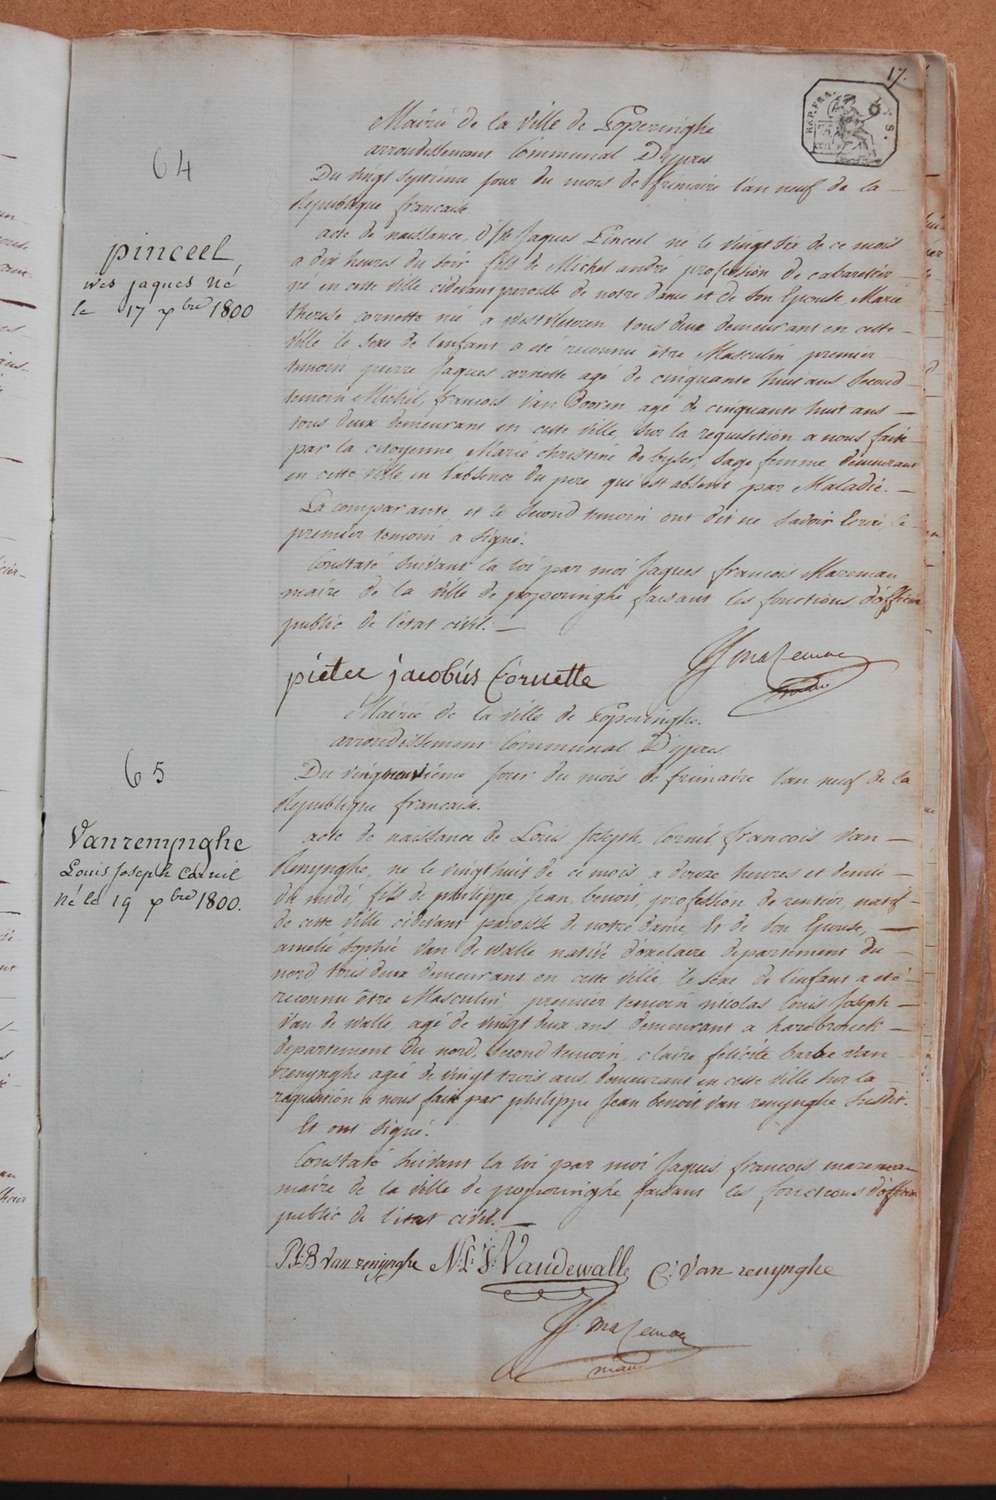 17.
REP. FRA.
LYS.
Mairie de la ville de Poperinghe
arrondissement Communal D'ypres
64
Du vingt septieme jour du mois de frimaire l'an neuf de la
Republique francaise
pinceel
jaques né
le 17 xbre 1800
acte de naissance, d' Jaques Pinceel né le vingt six de ce mois
a dix heures du soir fils de Michel andré profession de cabaretier
né en cette ville cidevant paroisse de notre dame et de son Epouse Marie
therese cornette née a westvleteren tous deux demeurant en cette
ville le sexe de l'enfant a été reconnu être Masculin premier
temoin pierre Jaques cornette agé de cinquante huit ans second
temoin Michel francois Van Dooren agé de cinquante huit ans
tous deux demeurant en cette ville, sur la requisition a nous faite
par la citoyenne Marie christine de byser, Sage femme, demeurant
en cette ville en l'absence du pere que est absent par Maladie.
La comparante et le second temoin ont dit ne savoir Ecrire le
premier temoin a signé.
Constaté suivant la loi par moi Jaques francois Mazeman
maire de la ville de poperinghe faisant les fonctions d'officier
public de l'etat civil.
pieter jacobus Cornette
JF mazeman
maire
Mairie de la ville de Poperinghe.
arrondissement Communal D'ypres
65
Du vingneuvième jour du mois de frimaire l'an neuf de la
Republique francaise.
Vanrenynghe
Louis Joseph Corneil
Né le 19 xbre 1800.
acte de naissance de Louis Joseph Corneil francois Van
Renynghe, né le vingthuit de ce mois, a douze heures et demie
du midi, fils de philippe, Jean, benoit, profession de rentier, natif
de cette ville cidevant paroisse de notre dame, Et de son Epouse,
amelie Sophie Van de walle native d'oxelaire departement du
nord tous deux demeurant en cette ville, le sexe de l'enfant a eté
reconnu être Masculin premier temoin nicolas louis Joseph
Van de walle agé de vingt deux ans demeurant a hazebrouck
departement du nord. Second temoin, claire felicite barbe van
renynghe agée de vingt trois ans, demeurant en cette ville sur la
requisition a nous faite par philippe Jean benoit Van renynghe susdit.
Et ont signé.
Constaté suivant la loi par moi Jaques francois mazeman
maire de la ville de poperinghe faisant les fonctions d'officier
public de l'etat civil.
P.J.B Van renynghe N: L: J: Vandewalle C: Van renynghe
JF mazeman
maire